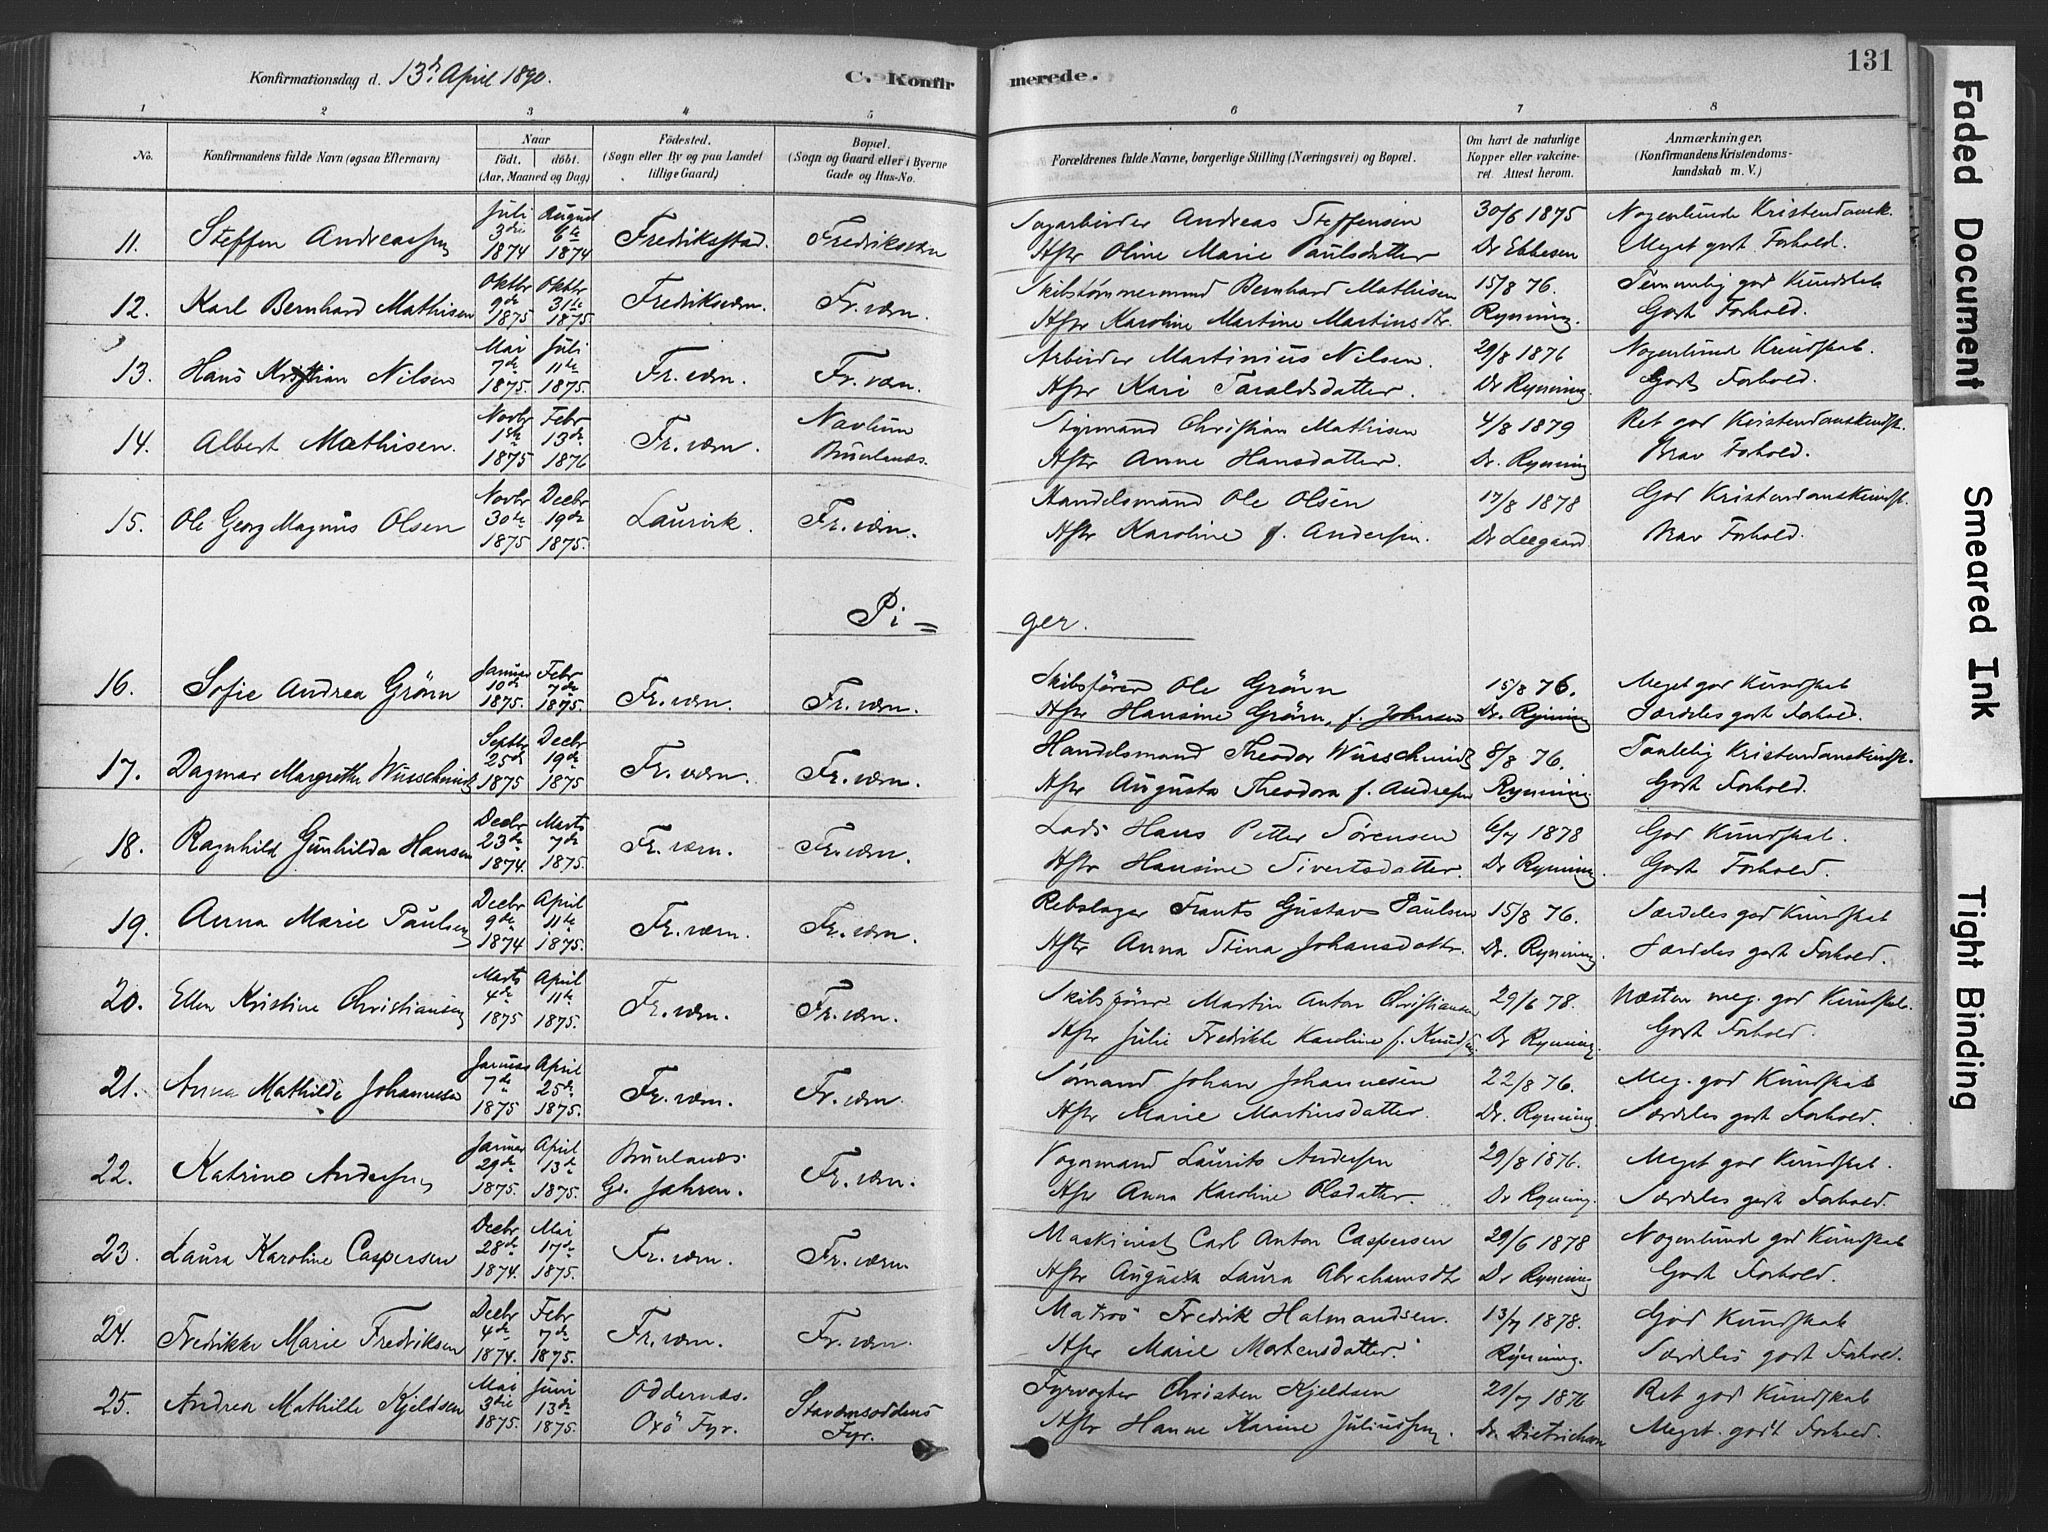 Konfirmationsdag d. 13de April 1890.
C. Konfirmerede.
131
1 2 3 4 5 6 7 8
No.
Konfirmandens fulde Navn (ogsaa Efternavn)
Naar
født. døbt.
(Aar, Maaned og Dag)
Fødested.
(Sogn eller By og paa Landet
tillige Gaard)
Bopæl.
(Sogn og Gaard eller i Byerne
Gade og Hus-No.
Forældrenes fulde Navne, borgerlige Stilling (Næringsvei) og Bopæl.
Om havt de naturlige
Kopper eller vakcine-
ret. Attest herom.
Anmærkninger,
(Konfirmandens Kristendoms-
kundskab m. V.)
11. Steffen Andreassen
Juli 3die 1874
August 6te 1874
Fredriksstad.
Fredriksværn
Sagarbeider Andreas Steffensen
Hstr Oline Marie Paulsdatter
30/6 1875
Dr Ebbesen
Nogenlunde Kristendomsk.
Meget godt Forhold.
12. Karl Bernhard Mathisen
Oktbr 9de 1875
Oktbr 31te 1875.
Fredriksværn.
Fr.værn.
Skibstømmermand Bernhard Mathisen
Hstr Karoline Martine Martinsdtr.
15/8 76.
Rynning.
Temmelig god Kundskab
Godt Forhold.
13. Hans Kristian Nilsen
Mai 7de 1875
Juli 11te 1875.
Fr.værn.
Fr.værn.
Arbeider Martinius Nilsen.
Hstr Kari Taraldsdatter.
29/8 1876
Dr Rynning.
Nogenlund Kundskab.
Godt Forhold.
14. Albert Mathisen.
Novbr 1ste 1875
Febr 13de 1876
Fr.værn.
Navlum
Brunlanæs.
Styrmand Christian Mathisen
Hstr Anne Hansdatter.
4/8 1879
Dr. Rynning
Ret god Kristendomskundsk.
Brav Forhold.
15. Ole Georg Magnus Olsen
Novbr 30te 1875
Decbr 19de 1875.
Laurvik.
Fr.værn.
Handelsmand Ole Olsen
Hstr Karoline f. Andersen.
17/8 1878
Dr Leegaard.
God Kristendomskundsk.
Brav Forhold.
Pi=
ger.
16. Sofie Andrea Grønn
Januar 10de 1875.
Febr 7de 1875.
Fr.værn.
Fr.værn.
Skibsfører Ole Grønn
Hstr Hansine Grønn, f. Johnsen
15/8 76.
Dr. Rynning
Meget god Kundskab
Særdeles godt Forhold.
17. Dagmar Margrethe Wusschmidt
Septbr 25de 1875
Decbr 19de 1875
Fr.værn.
Fr.værn.
Handelsmand Theodor Wusschmidt
Hstr Augusta Theodora f. Andresen
8/8 76.
Rynning
Taalelig Kristendomskundsk.
Godt Forhold.
18. Ragnhild Gunhilda Hansen
Decbr 23de 1874.
Marts 7de 1875.
Fr.værn.
Fr.værn.
Lods Hans Petter Sørensen
Hstr Hansine Sivertsdatter.
6/7 1878
Dr Rynning.
God Kundskab.
Godt Forhold.
19. Anna Marie Paulsen
Decbr 9de 1874
April 11te 1875.
Fr.værn.
Fr.værn.
Rebslager Frants Gustav Paulsen
Hstr Anna Stina Johansdatter.
15/8 76.
Dr. Rynning.
Særdeles god Kundskab
Særdeles godt Forhold.
20. Ellen Kristine Christiansen
Marts 4de 1875
April 11te 1875.
Fr.værn.
Fr.værn.
Skibsfører Martin Anton Christiansen
Hstr Julie Fredrikke Karoline f. Knudsen
29/6 78.
Dr Rynning.
Næsten meg. god Kundskab.
Godt Forhold.
21. Anna Mathilde Johannesen
Januar 7de 1875
April 25de 1875.
Fr.værn.
Fr.værn.
Sømand Johan Johannesen
Hstr Marie Martinsdatter.
22/8 76.
Dr. Rynning.
Meg. god Kundskab
Særdeles godt Forhold.
22. Katrine Andersen
Januar 29de 1875.
April 13de 1875.
Brunlanæs.
Gd. Jahren.
Fr.værn.
Vognmand Laurits Andersen
Hstr Anna Karoline Olsdatter.
29/8 1876.
Dr Rynning.
Meget god Kundskab.
Særdeles godt Forhold.
23. Laura Karoline Caspersen
Decbr 28de 1874.
Mai 17de 1875.
Fr.værn.
Fr.værn
Maskinist Carl Anton Caspersen
Hstr Augusta Laura Abrahamsdt
29/6 1878
Dr Rynning
Nogenlund god Kundskab
Godt Forhold.
24. Fredrikke Marie Fredriksen
Decbr 4de 1874.
Febr 7de 1875.
Fr.værn.
Fr.værn.
Matros Fredrik Halmandsen.
Hstr Marie Mortensdatter.
13/7 1878.
Rynning.
God Kundskab
Særdeles godt Forhold.
25. Andrea Mathilde Kjeldsen
Mai 3die 1875.
Juni 13de 1875.
Oddernæs.
Oxö Fyr.
Stavernsoddens
Fyr.
Fyrvogter Christen Kjeldsen
Hstr Hanne Karine Juliussen.
1876
Dr. Dietrichson
Ret god Kundskab
Meget godt Forhold.
Faded Document
Smeared Ink
Tight Binding